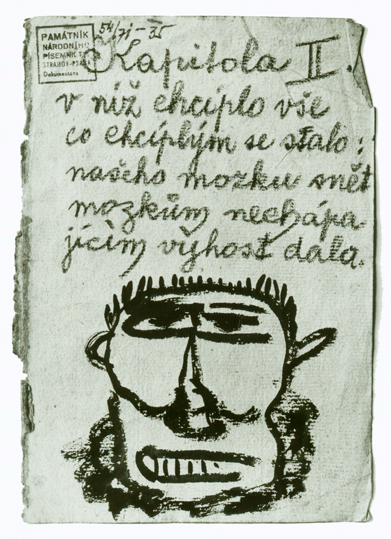 PAMÁTNÍK
NÁRODNÍHO
PÍSEMNICTVÍ
STRAHOV-PRAHA
Dokumentace
54/71-35
Kapitola II.
v níž chcíplo vše
co chcíplým se stalo:
našeho mozku snět
mozkům nechápa-
jícím výhost dala.